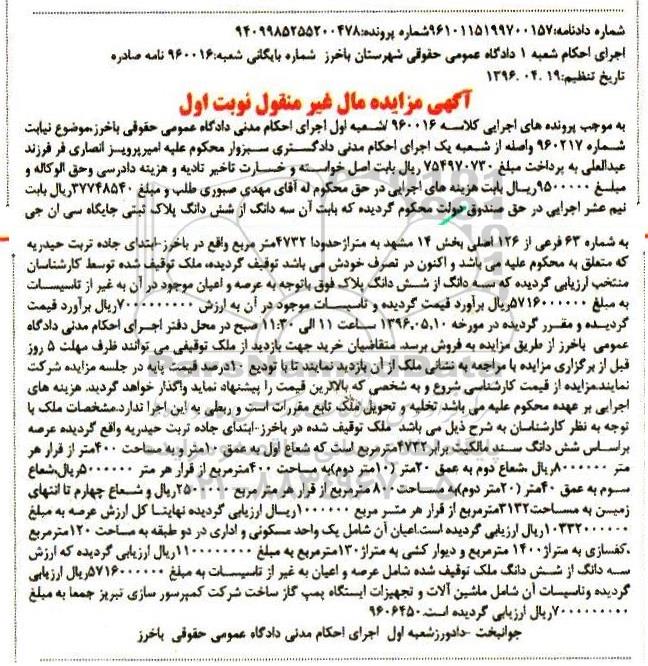 شماره دادنامه:۹۶۱۰۱۱۵۱۹۹۷۰۰۱۵۷شماره پرونده:۹۴۰۹۹۸۵۲۵۵۲۰۰۴۷۸
اجرای احکام شعبه ۱ دادگاه عمومی حقوقی شهرستان باخرز شماره بایگانی شعبه:۹۶۰۰۱۶ نامه صادره
تاریخ تنظیم:۱۹ .۰۴ .۱۳۹۶
آگهی مزایده مال غیر منقول نوبت اول
به موجب پرونده های اجرایی کلاسه ۹۶۰۰۱۶ /شعبه اول اجرای احکام مدنی دادگاه عمومی حقوقی باخرز،موضوع نیابت
شماره ۹۶۰۲۱۷ واصله از شعبه یک اجرای احکام مدنی دادگستری سبزوار محکوم علیه امیرپرویز انصاری فر فرزند
عبدالعلی به پرداخت مبلغ ۷۵۴۹۷۰۷۳۰ ریال بابت اصل خواسته و خسارت تاخیر تادیه و هزینه دادرسی وحق الوکاله و
مبلغ ۹۵۰۰۰۰۰ریال بابت هزینه های اجرایی در حق محکوم له آقای مهدی صبوری طلب و مبلغ ۳۷۷۴۸۵۴۰ریال بابت
نیم عشر اجرایی در حق صندوق دولت محکوم گردیده که بابت آن سه دانگ از شش دانگ پلاک ثبتی جایگاه سی ان جی
به شماره ۶۳ فرعی از ۱۲۶ اصلی بخش ۱۴ مشهد به متراژحدودا ۴۷۳۲متر مربع واقع در باخرز-ابتدای جاده تربت حیدریه
که متعلق به محکوم علیه می باشد و اکنون در تصرف خودش می باشد توقیف گردیده، ملک توقیف شده توسط کارشناسان
منتخب ارزیابی گردیده که سه دانگ از شش دانگ پلاک فوق باتوجه به عرصه و اعیان موجود در آن به غیر از تاسیسات
به مبلغ ۵۷۱۶۰۰۰۰۰۰ریال برآورد قیمت گردیده و تاسیسات موجود در آن به ارزش ۷۰۰۰۰۰۰۰۰۰ریال برآورد قیمت
گردیده و مقرر گردیده در مورخه ۱۳۹۶،۰۵،۱۰ ساعت ۱۱ الی ۱۱:۳۰ صبح در محل دفتر اجرای احکام مدنی دادگاه
عمومی باخرز از طریق مزایده به فروش برسد. متقاضیان خرید جهت بازدید از ملک توقیفی می توانند ظرف مهلت ۵ روز
قبل از برگزاری مزایده با مراجعه به نشانی ملک از آن بازدید نمایند تا با تودیع ۱۰درصد قیمت پایه در جلسه مزایده شرکت
نمایند.مزایده از قیمت کارشناسی شروع و به شخصی که بالاترین قیمت را پیشنهاد نماید واگذار خواهد گردید. هزینه های
اجرایی بر عهده محکوم علیه می باشد. تخلیه و تحویل ملک تابع مقررات است و ربطی به این اجرا ندارد.مشخصات ملک با
توجه به نظر کارشناسان به شرح ذیل می باشد. ملک توقیف شده در باخرز-ابتدای جاده تربت حیدریه واقع گردیده عرصه
براساس شش دانگ سند مالکیت برابر۴۷۳۲مترمربع است که شعاع اول به عمق ۱۰متر و به مساحت ۴۰۰متر از قرار هر
متر ۸۰۰۰۰۰۰ریال ،شعاع دوم به عمق ۲۰متر (۱۰متر دوم)به مساحت ۴۰۰مترمربع از قرار هر متر ۵۰۰۰۰۰۰ریال،شعاع
سوم به عمق ۴۰متر (۲۰متر دوم)به مساحت۸۰۰مترمربع از قرار هر متر مربع ۲۵۰۰۰۰۰ریال و شعاع چهارم تا انتهای
زمین به مساحت۳۱۳۲مترمربع از قرار هر متر مربع ۱۰۰۰۰۰۰ریال ارزیابی گردیده نهایتا کل ارزش عرصه به مبلغ
۱۰۳۳۲۰۰۰۰۰۰ریال ارزیابی گردیده است.اعیان آن شامل یک واحد مسکونی و اداری در دو طبقه به مساحت ۱۲۰مترمربع
،کفسازی به متراژ۱۴۰۰ مترمربع و دیوار کشی به متراژ۱۳۰مترمربع به مبلغ ۱۱۰۰۰۰۰۰۰۰ریال ارزیابی گردیده که ارزش
سه دانگ از شش دانگ ملک توقیف شده شامل عرصه و اعیان به غیر از تاسیسات به مبلغ ۵۷۱۶۰۰۰۰۰۰ریال ارزیابی
گردیده وتاسیسات آن شامل ماشین آلات و تجهیزات ایستگاه پمپ گاز ساخت شرکت کمپرسور سازی تبریز جمعا به مبلغ
۷۰۰۰۰۰۰۰۰۰ریال ارزیابی گردیده است.۹۶۰۶۴۵۰
جوانبخت -دادورزشعبه اول اجرای احکام مدنی دادگاه عمومی حقوقی باخرز